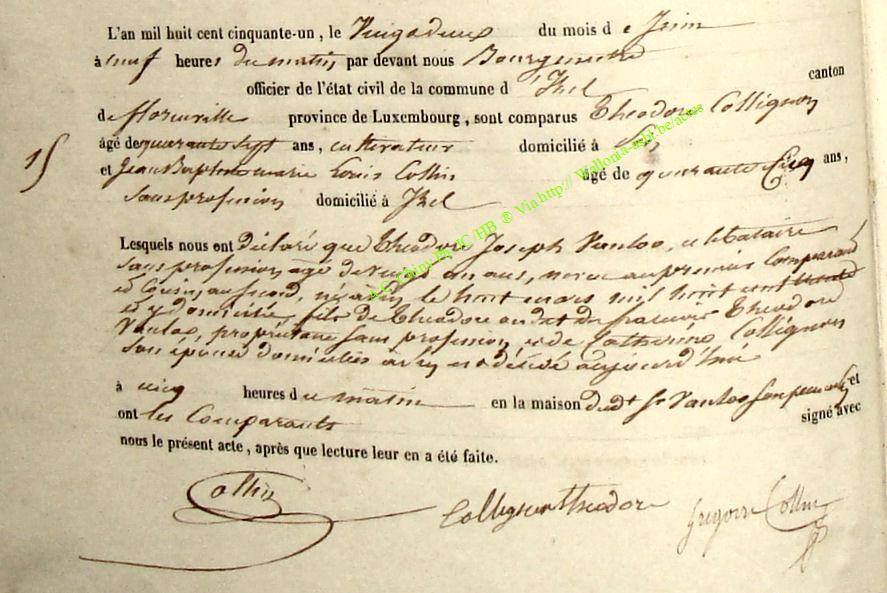 L'an mil huit cent cinquante-un, le Vingtdeux du mois de Juin
à neuf heures du matin, par devant nous Bourgmestre
officier de l'état civil de la commune d'Izel canton
de florenville province de Luxembourg, sont comparus Théodore Collignon
âgé de quarante sept ans, cultivateur domicilié à
15
et Jean Baptiste marie Louis Collin âgé de quarante Cinq ans,
sans profession domicilié à Izel
Lesquels nous ont déclaré que Théodore Joseph Vanloo, célibataire
sans profession, âgé de vingt ans, neveu au premier Comparant
et Cousin au second, né le huit mars mil huit cent trente
et y domicilié, fils de Théodore Théodore
Vanloo, propriétaire sans profession, et de Catherine Collignon
son épouse domiciliés est décédé aujourd'hui
à cinq heures du matin en la maison dudt Sr Vanloo son père, et
ont les Comparants signé avec
nous le présent acte, après que lecture leur en a été faite.
Collin
Collignon théodore
Grégoire Collin
® Via http:// Wallonia-asbl.be/actes